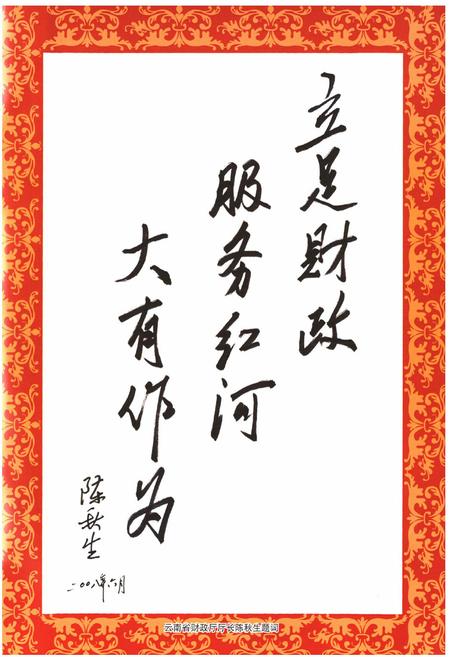 立足财政
服务红河
大有作为
陈秋生
二〇〇八年六月
云南省财政厅厅长陈秋生题词